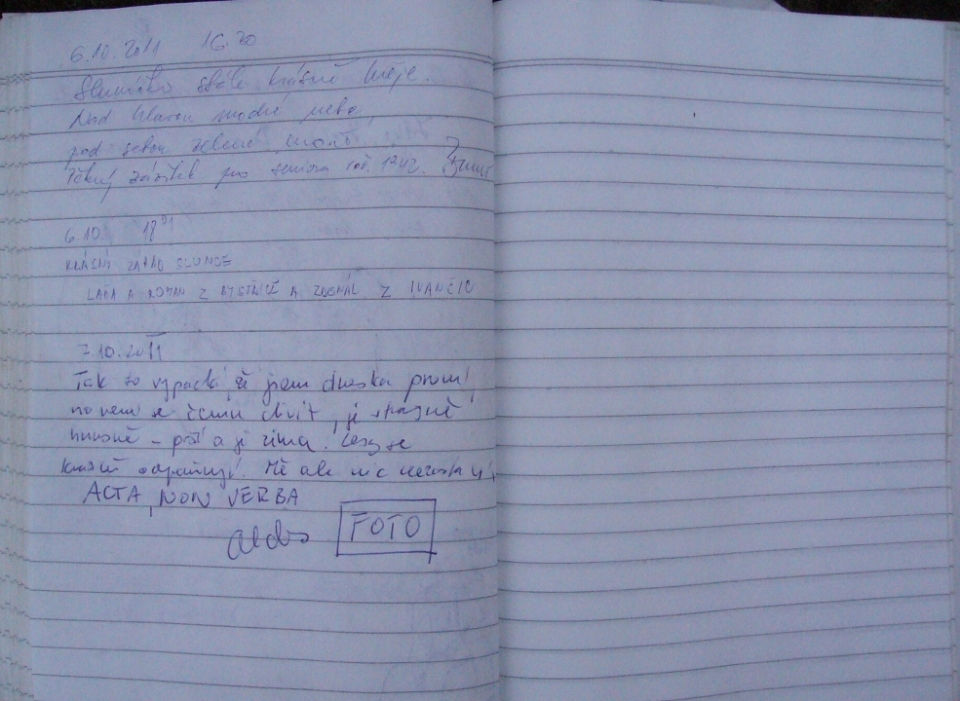 6.10.2011 16.20
Sluníčko stále krásně hřeje.
Nad hlavou modré nebe,
pod sebou zelené
Pěkný zážitek pro seniora roč. 1942.
6.10. 18 01
KRÁSNÝ ZÁPAD SLUNCE
LÁĎA A ROMAN Z BYSTŘICE A ZDENÁL Z IVANČIC
7.10.2011
Tak to vypadá, že jsem dneska první,
no není se čemu divit, je strašně
hnusně - prší a je zima. Lesy se
krásně odpařují. Mě ale nic nezastaví,
ACTA, NON VERBA
FOTO